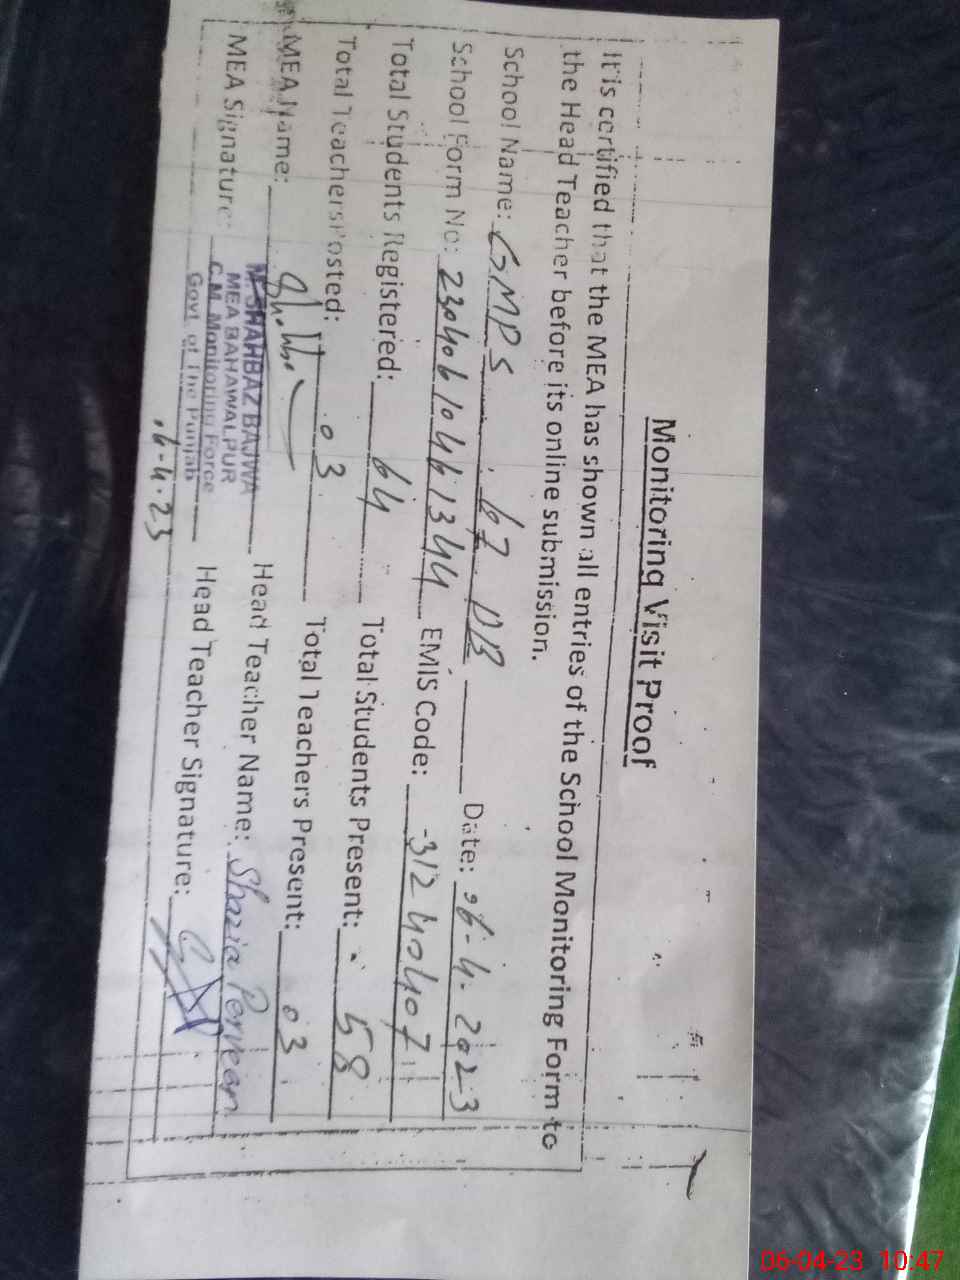 Monitoring Visit Proof
It is certified that the MEA has shown all entries of the School Monitoring Form to
the Head Teacher before its online submission.
School Name: GMPS 67 DB Date: 06-4-2023
School Form No: 23040610461344 EMIS Code: 31240407
Total Students Registered: 64 Total Students Present: 58
Total Teachers Posted: 03 Total Teachers Present: 03
MEA Name: Head Teacher Name: Shazia Perveen
M. SHAHBAZ BAJWA
MEA BAHAWALPUR
C.M. Monitoring Force
Govt. of The Punjab
MEA Signature: Head Teacher Signature:
6-4-23
06-04-23 10:47